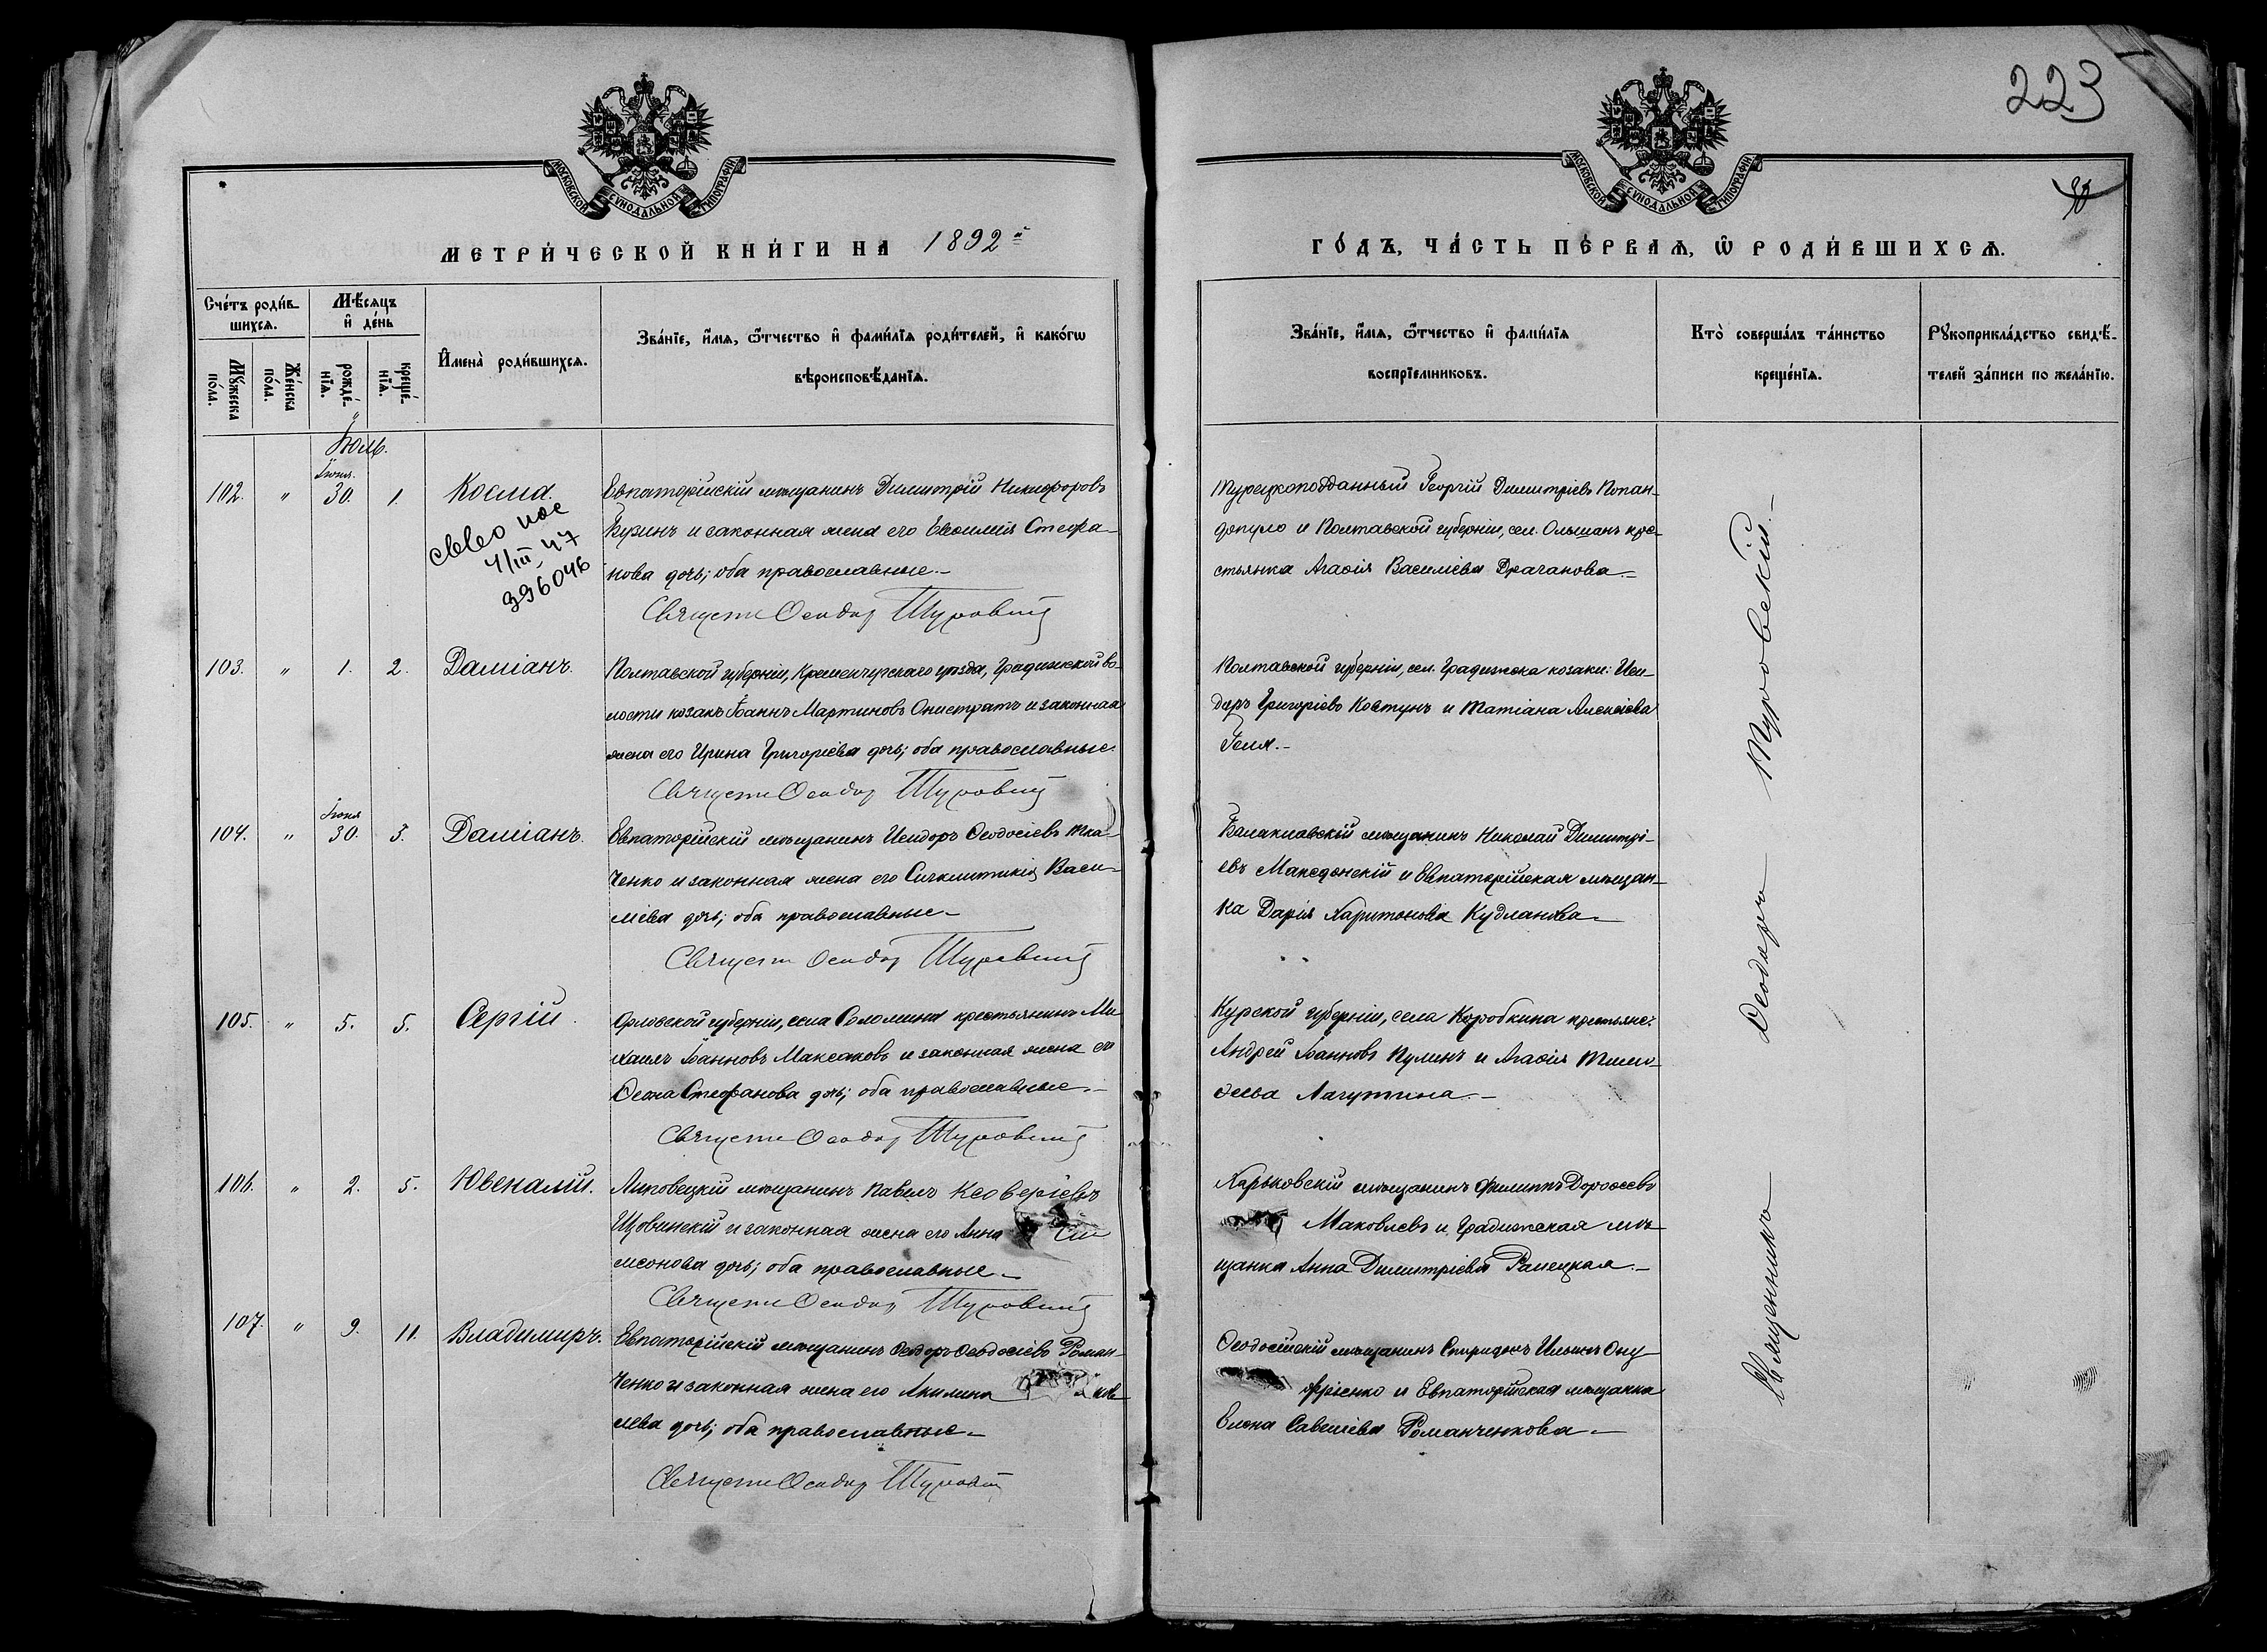 223
МОСКОВСКОЙ СУНОДАЛЬНОЙ ТИПОГРАФІИ
МОСКОВСКОЙ СУНОДАЛЬНОЙ ТИПОГРАФІИ
МЕТРИ́ЧЕСКОЙ КНИ́ГИ НА 1892й
ГО́ДЪ, ЧА́СТЬ ПЕ́РВАѦ, Ѡ РОДИ́ВШИХСѦ.
Сче́тъ роди́в-
шихсѧ.
Мꙋ́жеска по́ла.
Же́нска по́ла.
Мѣ́сѧцъ
и҆ де́нь
рожде́-нїѧ.
креще́-нїѧ.
И҆мена̀ роди́вшихсѧ.
Зва́нїе, и҆́мѧ, ѻ҆́тчество и҆ фами́лїѧ роди́телей, и҆ како́гѡ
вѣроисповѣ́данїѧ.
Зва́нїе, и҆́мѧ, ѻ҆́тчество и҆ фами́лїѧ
воспрїе́мниковъ.
Кто̀ соверша́лъ та́инство
креще́нїѧ.
Рꙋкоприкла́дство свидѣ́-
телей за́писи по жела́нїю.
Іюль.
Іюня.
102. " 30. 1. Косма.
4/III 47
996046
Евпаторійскій мѣщанинъ Димитрій Никифоровъ
Бузинъ и законная жена его Евѳимія Стефа-
нова дочь; оба православные.-
Священ Ѳеодор Туровскій
Турецкоподданный Георгій Димитріевъ Попан-
допуло и Полтавской губерніи, сел. Ольшанъ кре-
стьянка Агаѳія Василіева Драганова.-
103. " 1. 2. Даміанъ.
Полтавской губерніи, Кременчугскаго уѣзда, Градижской во-
лости козакъ Іоаннъ Мартиновъ Онистратъ и законная
жена его Ирина Григоріева дочь; оба православные.
Священ Ѳеодор Туровскій
Полтавской губерніи, сел. Градижска козаки: Иси-
доръ Григоріевъ Ковтунъ и Татіана Алексіева
Геля.-
Іюня
104. " 30. 3. Даміанъ.
Евпаторійскій мѣщанинъ Исидоръ Ѳеодосіевъ Тка-
ченко и законная жена его Васи-
ліева дочь; оба православные.-
Священ Ѳеодор Туровскій
Балаклавскій мѣщанинъ Николай Димитрі-
евъ Македонскій и Евпаторійская мѣщан-
ка Дарія Харитонова Кудланова.-
105. " 5. 5. Сергій.
Орловской губерніи, села Соломина крестьянинъ Ми-
хаилъ Іоанновъ Максаковъ и законная жена его
Ѳекла Стефанова дочь; оба православные.-
Священ Ѳеодор Туровскій
Курской губерніи, села Коробкина крестьяне:
Андрей Іоанновъ Пулинъ и Агаѳія Тимо-
ѳеева Лагутина.-
106. " 2. 5. Ювеналій.
Липовецкій мѣщанинъ Павелъ Ксаверіевъ
Щовинскій и законная жена его Анна Си-
меонова дочь; оба православные.-
Священ Ѳеодор Туровскій
Харьковскій мѣщанинъ Филиппъ Дороѳеевъ
Маковлевъ и Градижская мѣ-
щанка Анна Димитріева Ранецкая.-
107. " 9. 11. Владимиръ.
Евпаторійскій мѣщанинъ Ѳеодоръ Ѳеодосіевъ Роман-
ченко и законная жена его Акилина Іаков-
лева дочь; оба православные.-
Священ Ѳеодор Туровскій
Ѳеодосійскій мѣщанинъ Спиридонъ Ильинъ Ону-
фріенко и Евпаторійская мѣщанка
Елена Савеліева Романченкова.-
Священникъ Ѳеодоръ Туровскій.-